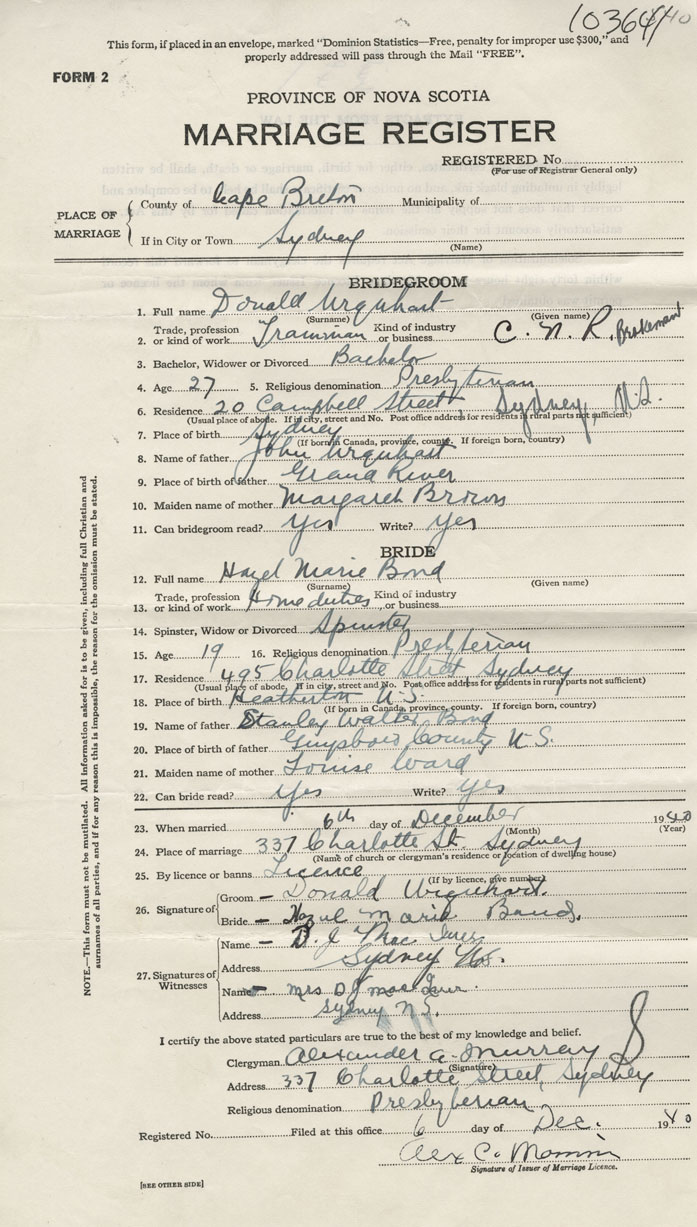 10364/40
This form, if placed in an envelope, marked "Dominion Statistics—Free, penalty for improper use $300," and
properly addressed will pass through the Mail "FREE".
FORM 2
PROVINCE OF NOVA SCOTIA
MARRIAGE REGISTER
REGISTERED No.
(For use of Registrar General only)
PLACE OF MARRIAGE
County of Cape Breton Municipality of
If in City or Town Sydney
(Name)
BRIDEGROOM
1. Full name Donald Urquhart
(Surname) (Given name)
2. Trade, profession or kind of work Trainman Kind of industry or business C. N. R. Brakeman
3. Bachelor, Widower or Divorced Bachelor
4. Age 27 5. Religious denomination Presbyterian
6. Residence 20 Campbell Street Sydney, N.S.
(Usual place of abode. If in city, street and No. Post office address for residents in rural parts not sufficient)
7. Place of birth Sydney
(If born in Canada, province, county. If foreign born, country)
8. Name of father John Urquhart
9. Place of birth of father Grand River
10. Maiden name of mother Margaret Brown
11. Can bridegroom read? Yes Write? Yes
BRIDE
12. Full name Hazel Marie Bond
(Surname) (Given name)
13. Trade, profession or kind of work Home duties Kind of industry or business
14. Spinster, Widow or Divorced Spinster
15. Age 19 16. Religious denomination Presbyterian
17. Residence 495 Charlotte Street Sydney
(Usual place of abode. If in city, street and No. Post office address for residents in rural parts not sufficient)
18. Place of birth Heatherton N.S.
(If born in Canada, province, county. If foreign born, country)
19. Name of father Stanley Walter Bond
20. Place of birth of father Guysboro County N.S.
21. Maiden name of mother Louise Ward
22. Can bride read? Yes Write? Yes
23. When married 6th day of December 1940
(Month) (Year)
24. Place of marriage 337 Charlotte St. Sydney
(Name of church or clergyman's residence or location of dwelling house)
25. By licence or banns Licence
(If by licence, give number)
26. Signature of Groom — Donald Urquhart.
Bride — Hazel Marie Bond.
27. Signatures of Witnesses
Name — D. J. Mac
Address Sydney N.S.
Name — Mrs D J Mac
Address Sydney N.S.
I certify the above stated particulars are true to the best of my knowledge and belief.
Clergyman Alexander A. Murray
(Signature)
Address 337 Charlotte Street, Sydney
Religious denomination Presbyterian
Registered No. Filed at this office 6 day of Dec. 1940
Alex C.
Signature of Issuer of Marriage Licence.
[SEE OTHER SIDE]
NOTE.—This form must not be mutilated. All information asked for is to be given, including full Christian and
surnames of all parties, and if for any reason this is impossible, the reason for the omission must be stated.